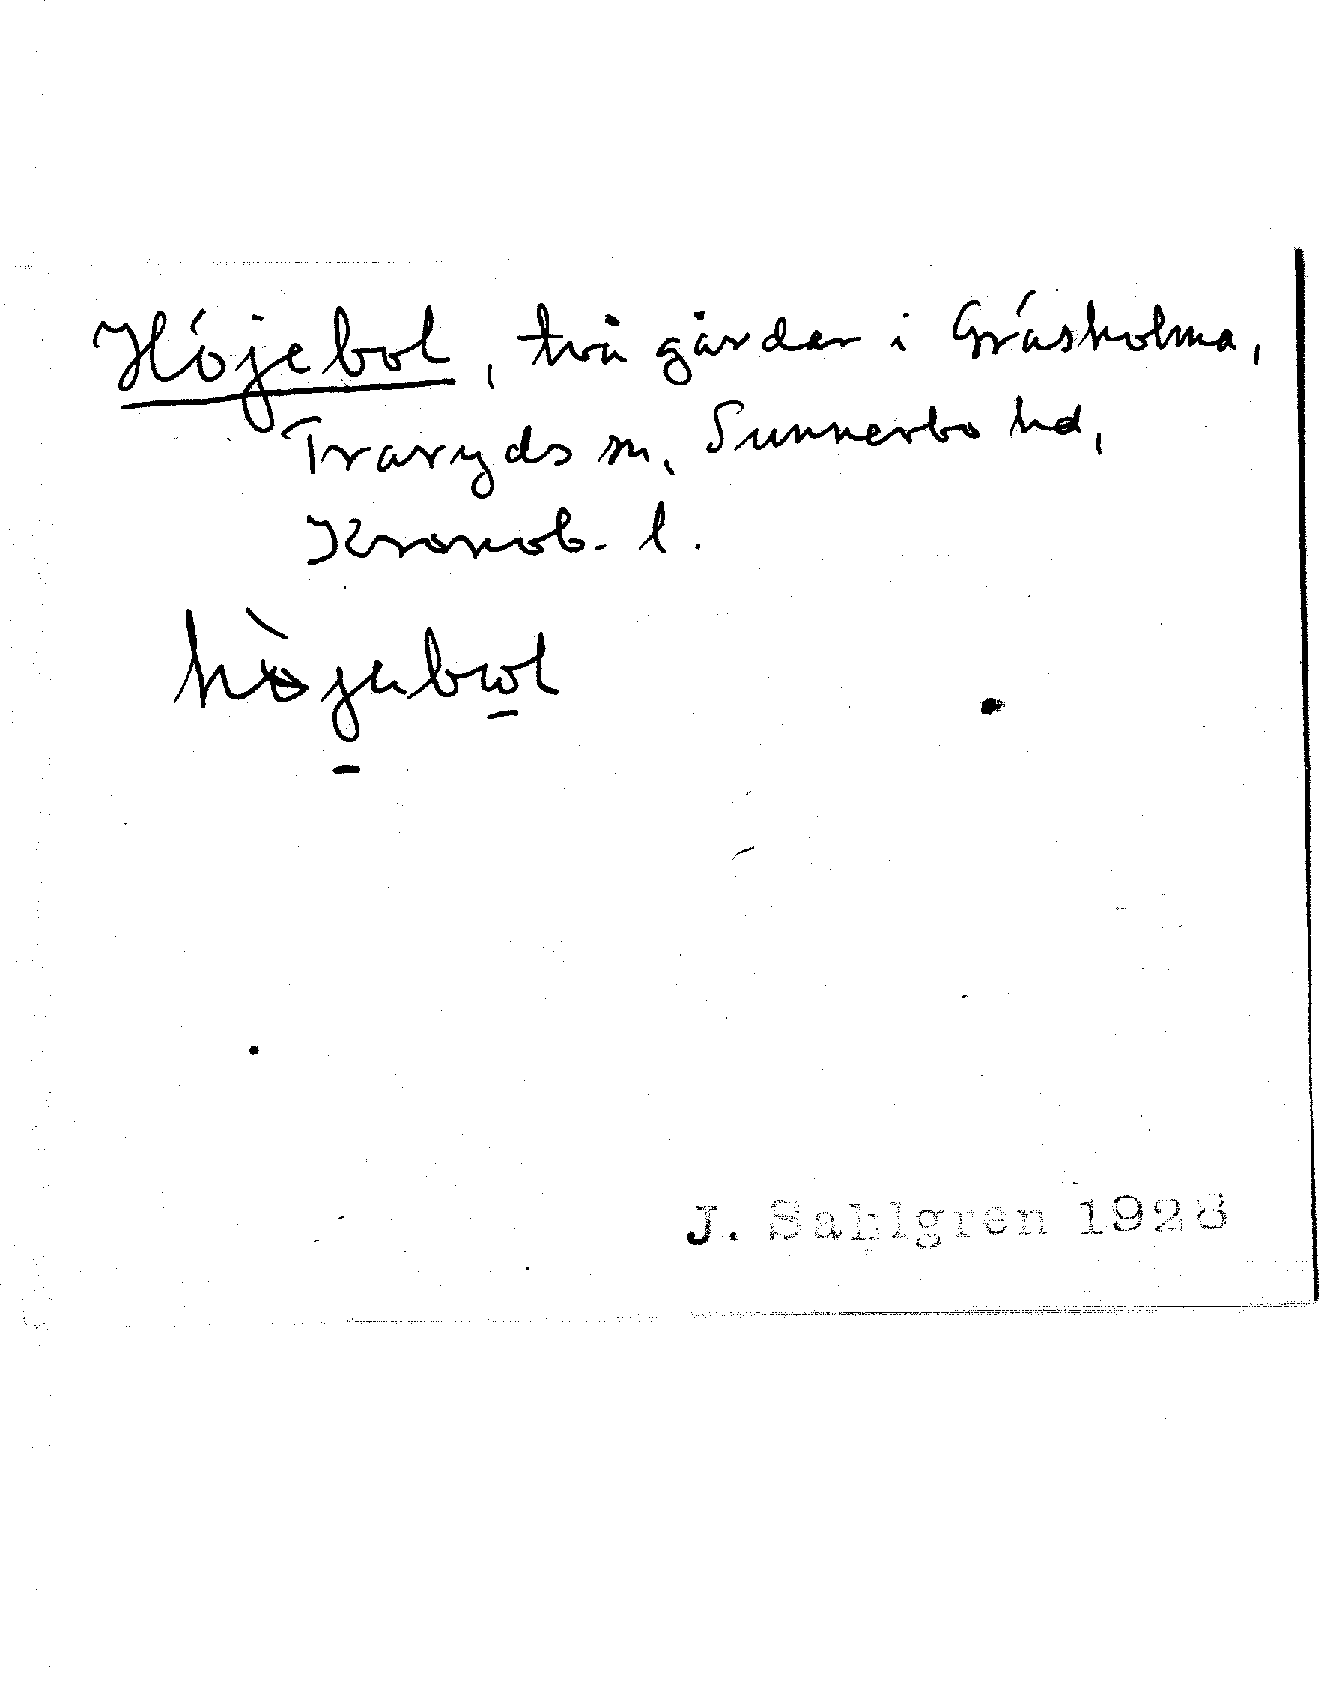 Höjebol, två gårdar i Gräsholma,
Traryds sn, Sunnerbo hd,
Kronob. l.
J. Sahlgren 1928